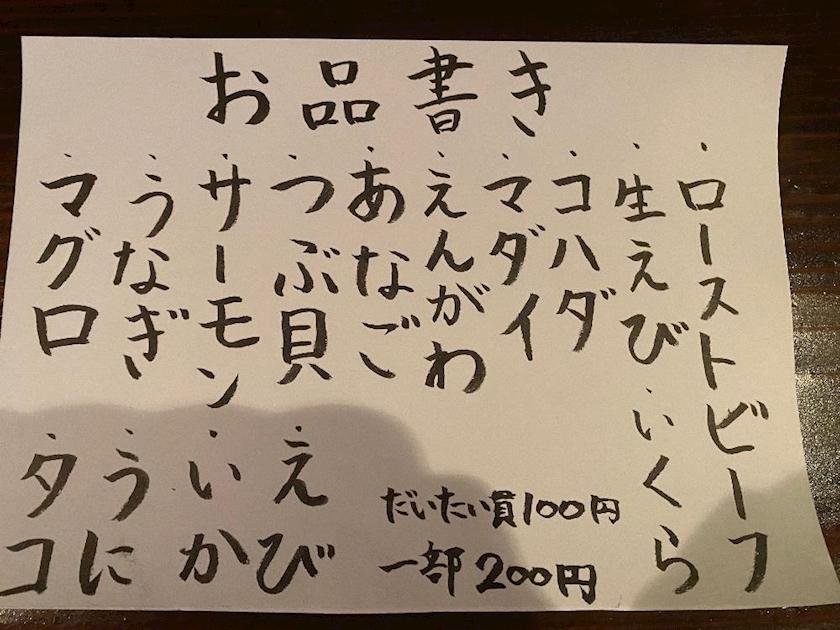 お品書き
・ローストビーフ
・生えび
・いくら
・コハダ
・マダイ
・えんがわ
・あなご
・つぶ貝
・サーモン
・うなぎ
・マグロ
・えび
・いか
・うに
・タコ
だいたい貫100円
一部200円